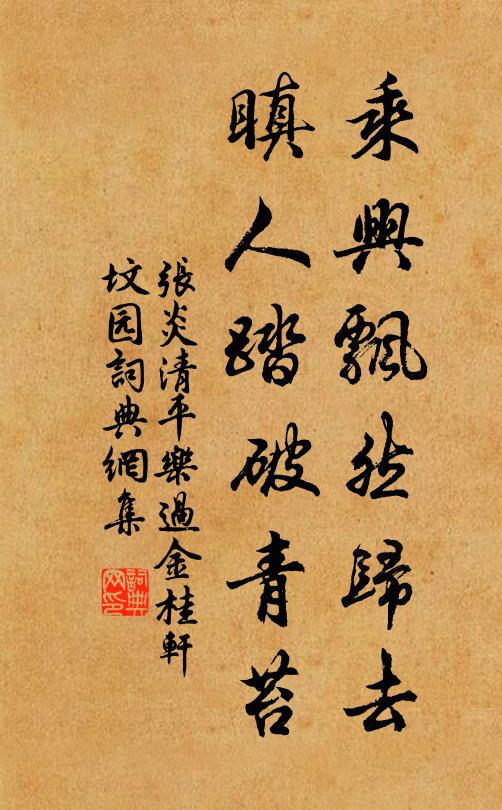 乘興飄然歸去
瞋人踏破青苔
張炎清平樂過金桂軒
坟园詞典網集
詞典网印